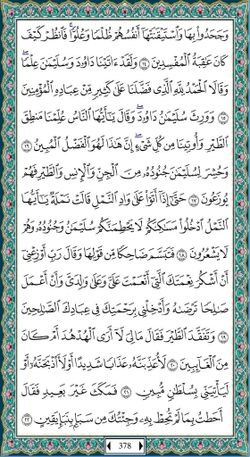 وَجَحَدُوا۟ بِهَا وَٱسْتَيْقَنَتْهَآ أَنفُسُهُمْ ظُلْمًا وَعُلُوًّا ۚ فَٱنظُرْ كَيْفَ
كَانَ عَـٰقِبَةُ ٱلْمُفْسِدِينَ ١٤ وَلَقَدْ ءَاتَيْنَا دَاوُۥدَ وَسُلَيْمَـٰنَ عِلْمًا ۖ
وَقَالَا ٱلْحَمْدُ لِلَّهِ ٱلَّذِى فَضَّلَنَا عَلَىٰ كَثِيرٍ مِّنْ عِبَادِهِ ٱلْمُؤْمِنِينَ
١٥ وَوَرِثَ سُلَيْمَـٰنُ دَاوُۥدَ ۖ وَقَالَ يَـٰٓأَيُّهَا ٱلنَّاسُ عُلِّمْنَا مَنطِقَ
ٱلطَّيْرِ وَأُوتِينَا مِن كُلِّ شَىْءٍ ۖ إِنَّ هَـٰذَا لَهُوَ ٱلْفَضْلُ ٱلْمُبِينُ ١٦
وَحُشِرَ لِسُلَيْمَـٰنَ جُنُودُهُۥ مِنَ ٱلْجِنِّ وَٱلْإِنسِ وَٱلطَّيْرِ فَهُمْ
يُوزَعُونَ ١٧ حَتَّىٰٓ إِذَآ أَتَوْا۟ عَلَىٰ وَادِ ٱلنَّمْلِ قَالَتْ نَمْلَةٌ يَـٰٓأَيُّهَا
ٱلنَّمْلُ ٱدْخُلُوا۟ مَسَـٰكِنَكُمْ لَا يَحْطِمَنَّكُمْ سُلَيْمَـٰنُ وَجُنُودُهُۥ وَهُمْ
لَا يَشْعُرُونَ ١٨ فَتَبَسَّمَ ضَاحِكًا مِّن قَوْلِهَا وَقَالَ رَبِّ أَوْزِعْنِىٓ
أَنْ أَشْكُرَ نِعْمَتَكَ ٱلَّتِىٓ أَنْعَمْتَ عَلَىَّ وَعَلَىٰ وَٰلِدَىَّ وَأَنْ أَعْمَلَ
صَـٰلِحًا تَرْضَىٰهُ وَأَدْخِلْنِى بِرَحْمَتِكَ فِى عِبَادِكَ ٱلصَّـٰلِحِينَ
١٩ وَتَفَقَّدَ ٱلطَّيْرَ فَقَالَ مَا لِىَ لَآ أَرَى ٱلْهُدْهُدَ أَمْ كَانَ
مِنَ ٱلْغَآئِبِينَ ٢٠ لَأُعَذِّبَنَّهُۥ عَذَابًا شَدِيدًا أَوْ لَأَا۟ذْبَحَنَّهُۥٓ أَوْ
لَيَأْتِيَنِّى بِسُلْطَـٰنٍ مُّبِينٍ ٢١ فَمَكَثَ غَيْرَ بَعِيدٍ فَقَالَ
أَحَطتُ بِمَا لَمْ تُحِطْ بِهِۦ وَجِئْتُكَ مِن سَبَإٍۭ بِنَبَإٍ يَقِينٍ ٢٢
378